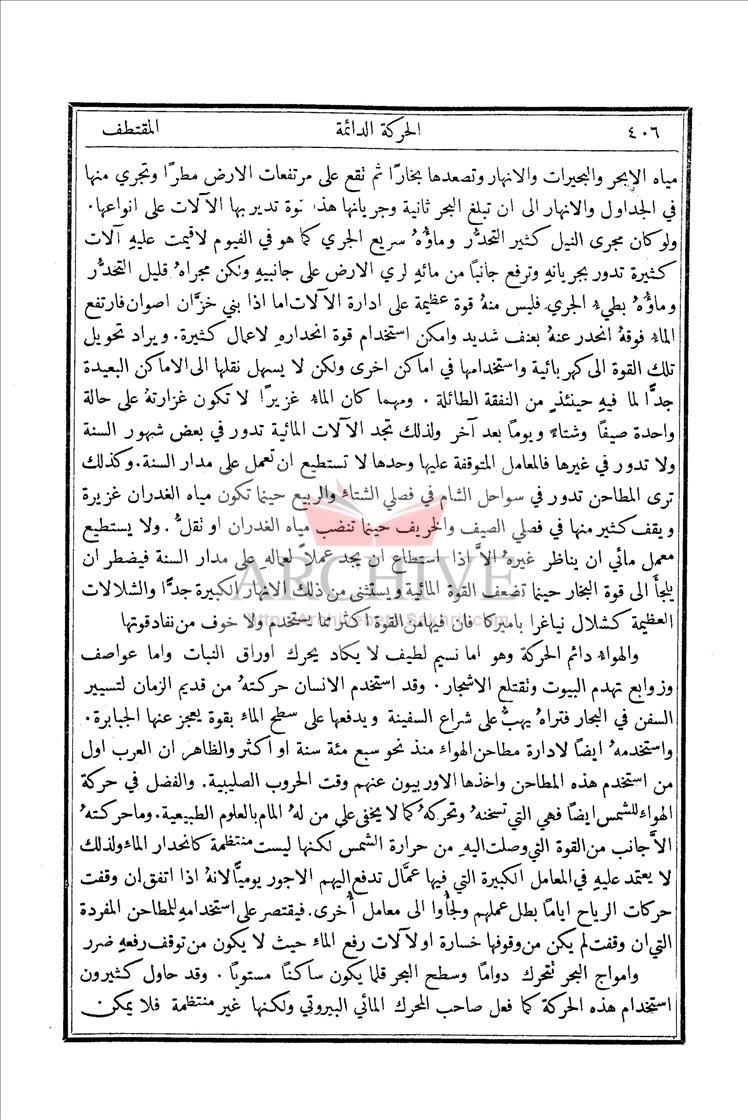 ٤٠٦ الحركة الدائمة المقتطف
مياه الابحر والبحيرات والانهار وتصعدها بخارًا ثم تقع على مرتفعات الارض مطرًا وتجري منها
في الجداول والانهار الى ان تبلغ البحر ثانية وجريانها هذا قوة تدير بها الآلات على انواعها.
ولو كان مجرى النيل كثير التحدُّر وماؤُهُ سريع الجري كما هو في الفيوم لاقيمت عليهِ آلات
كثيرة تدور بجريانهِ وترفع جانبًا من مائهِ لري الارض على جانبيهِ ولكن مجراهُ قليل التحدُّر
وماؤُهُ بطيءُ الجري فليس منهُ قوة عظيمة على ادارة الآلات اما اذا بني خزَّان اصوان فارتفع
الماءُ فوقهُ انحدر عنهُ بعنف شديد وامكن استخدام قوة انحداره لاعمال كثيرة. ويراد تحويل
تلك القوة الى كهربائية واستخدامها في اماكن اخرى ولكن لا يسهل نقلها الى الاماكن البعيدة
جدًّا لما فيهِ حينئذٍ من النفقة الطائلة. ومهما كان الماءُ غزيرًا لا تكون غزارتهُ على حالة
واحدة صيفًا وشتاءً ويومًا بعد آخر ولذلك تجد الآلات المائية تدور في بعض شهور السنة
ولا تدور في غيرها فالمعامل المتوقفة عليها وحدها لا تستطيع ان تعمل على مدار السنة. وكذلك
ترى المطاحن تدور في سواحل الشام في فصلي الشتاءِ والربيع حينما تكون مياه الغدران غزيرة
ويقف كثير منها في فصلي الصيف والخريف حينما تنضب مياه الغدران او نقلُّ. ولا يستطيع
معمل مائي ان يناظر غيرهُ الاَّ اذا استطاع ان يجد عملاً لعماله على مدار السنة فيضطر ان
يلجأَ الى قوة البخار حينما تضعف القوة المائية ويستثنى من ذلك الانهار الكبيرة جدًّا والشلالات
العظيمة كشلال نياغرا باميركا فان فيها من القوة اكثر مما يستخدم ولا خوف من نفاد قوتها
والهواءُ دائم الحركة وهو اما نسيم لطيف لا يكاد يحرك اوراق النبات واما عواصف
وزوابع تهدم البيوت ونقتلع الاشجار. وقد استخدم الانسان حركتهُ من قديم الزمان لتسيير
السفن في البحار فتراهُ يهبُّ على شراع السفينة ويدفعها على سطح الماءِ بقوة يعجز عنها الجبابرة.
واستخدمهُ ايضًا لادارة مطاحن الهواءِ منذ نحو سبع مئة سنة او اكثر والظاهر ان العرب اول
من استخدم هذه المطاحن واخذها الاوربيون عنهم وقت الحروب الصليبية. والفضل في حركة
الهواءِ للشمس ايضًا فهي التي تسخنهُ وتحركهُ كما لا يخفى على من لهُ المام بالعلوم الطبيعية. وما حركتهُ
الاَّ جانب من القوة التي وصلت اليهِ من حرارة الشمس لكنها ليست منتظمة كانحدار الماءِ ولذلك
لا يعتمد عليهِ في المعامل الكبيرة التي فيها عمَّال تدفع اليهم الاجور يوميًّا لانهُ اذا اتفق ان وقفت
حركات الرياح ايامًا بطل عملهم ولجأُوا الى معامل أُخرى. فيقتصر على استخدامهِ للمطاحن المفردة
التي ان وقفت لم يكن من وقوفها خسارة او لآلات رفع الماءِ حيث لا يكون من توقف رفعهِ ضرر
وامواج البحر تتحرك دوامًا وسطح البحر قلما يكون ساكنًا مستويًا. وقد حاول كثيرون
استخدام هذه الحركة كما فعل صاحب المحرك المائي البيروتي ولكنها غير منتظمة فلا يمكن
ARCHIVE